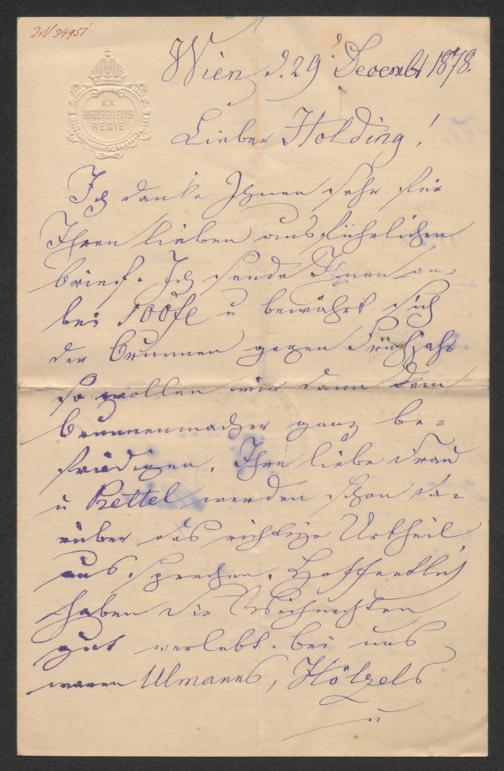 JN 34951
K.K.
REGIE
Wien d. 29' Decembr 1878.
Lieber Holding!
Ich danke Ihnen sehr für
Ihren lieben ausführlichen
brief. Ich sende Ihnen an-
bei 500 fl u bewährt sich
der brunnen gegen Frühjahr
so wollen wir dann dem
brunnenmacher ganz be-
friedigen. Ihre liebe Frau
u Rettel werden schon da-
rüber das richtige Urtheil
aus sprechen. Hoffentlich
haben Sie Weihnachten
gut verlebt. bei uns
waren Ulmanns, Hölzels
u